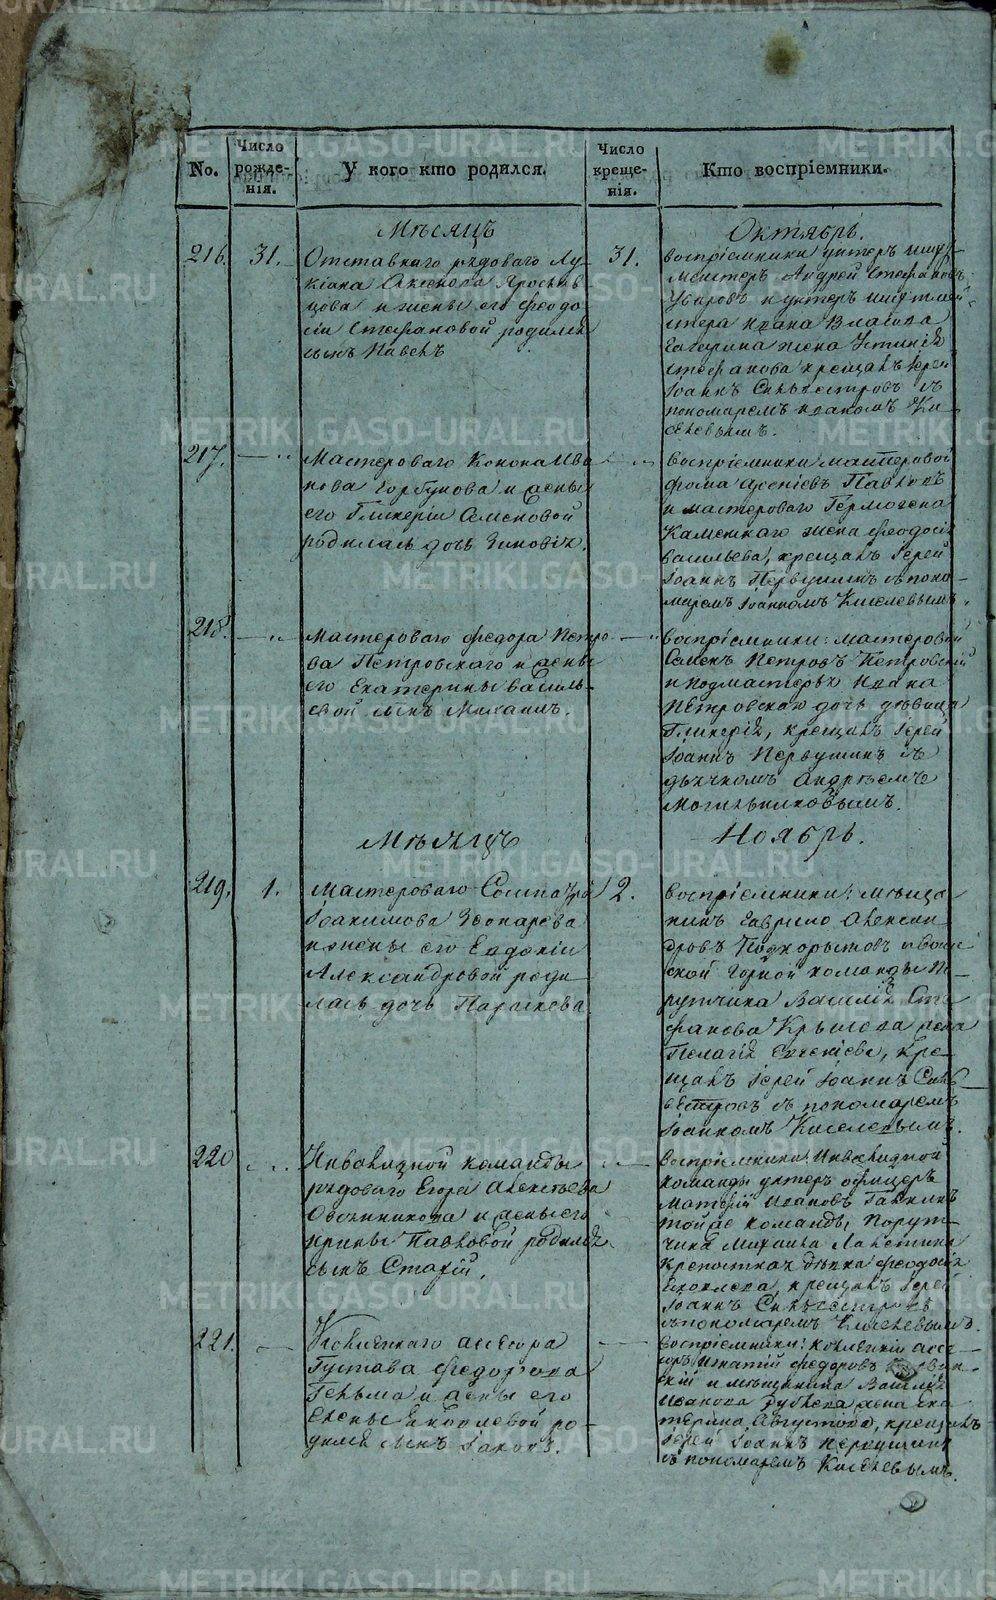 No.
Число рожде-нія.
У кого кто родился.
Число креще-нія.
Кто воспріемники.
Мѣсяцъ
Октябрь.
216.
31.
Отставнаго рядоваго Лу
кіана Аксенова
цова и жены его Феодо
сіи Стефановой родился
сынъ Павелъ
31.
воспріемники унтеръ шихт
мейстеръ Андрей Стефановъ
Уваровъ и унтеръ шихтмей
стера Ивана Власова
жена Устинія
Стефанова крещалъ Іерей
Іоаннъ Сильвестровъ съ
пономаремъ Иваномъ Ки
селевымъ.
217.
Мастероваго Конона Ива
нова Горбунова и жены
его Гликеріи Семеновой
родилась дочь Зиновія.
воспріемники мастеровой
Фома Арсеніевъ Павловъ
и мастероваго Гермогена
Каменскаго жена Феодосія
васильева, крещалъ Іерей
Іоаннъ Первушинъ съ поно-
маремъ Іоанномъ Киселевымъ.
218.
Мастероваго Федора Петро
ва Петровскаго и жены
его Екатерины Василь-
евой сынъ Михаилъ.
воспріемники: мастеровой
Семенъ Петровъ Петровскій
и подмастерья Ивана
Петровскаго дочь дѣвица
Гликерія, крещалъ Іерей
Іоаннъ Первушинъ съ
дьячкомъ Андреемъ
Могильниковымъ.
Мѣсяцъ
Ноябрь.
219.
1.
Мастероваго Сосипатра
Іоакимова
и жены его Евдокіи
Александровой роди
лась дочь Параскева
2.
воспріемники: мѣща
нинъ Гаврило Алексан
дровъ Подкорытовъ и
ской Горной команды П-
ручика Василія Сте
фанова Крылова жена
Пелагія Евгеніева, кре-
щалъ Іерей Іоаннъ Силь
вестровъ съ пономаремъ
Іоанномъ Киселевымъ.
220
Инвалидной команды
рядоваго Егора Алексѣева
Овчинникова и жены его
Ирины Павловой родился
сынъ Стахій.
воспріемники: Инвалидной
команды унтеръ офицеръ
Матвѣй Ивановъ Галкинъ
той же команды Порут-
чика Михаила
крепостная дѣвка Феодосія
Яковлева, крещалъ Іерей
Іоаннъ Сильвестровъ
съ пономаремъ Киселевымъ.
221.
Коллежскаго ассесора
Густава Федорова
Гельма и жены его
Елены Яковлевой ро-
дился сынъ Іаковъ.
воспріемники: коллежскій ассе-
соръ Игнатій Федоровъ
скій и мѣщанина Василія
Иванова жена Ека
терина Августова, крещалъ
Іерей Іоаннъ Первушинъ
съ пономаремъ Киселевымъ.
METRIKI.GASO-URAL.RU